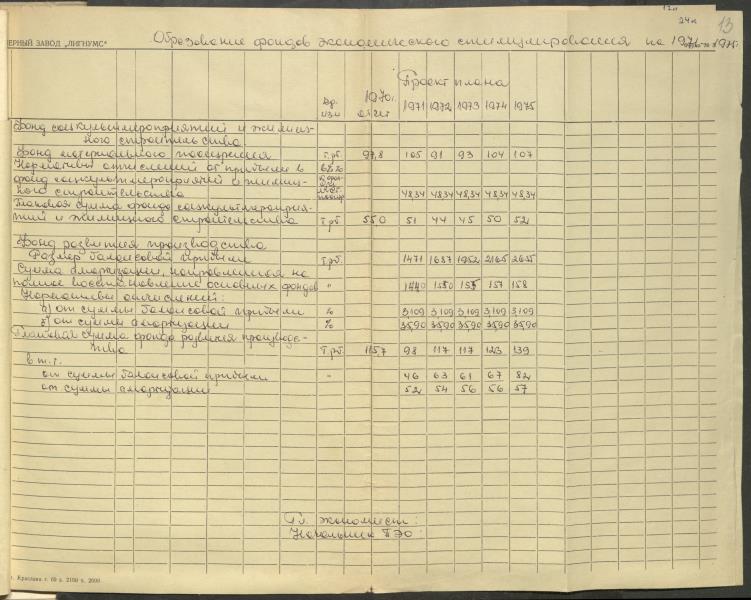 12а
24а
13
ЕРНЫЙ ЗАВОД „ЛИГНУМС"
Образование фондов экономического стимулирования на 1971-1975г.
Проект плана
Ед. изм 1970г. отчет 1971 1972 1973 1974 1975
Фонд соцкультмероприятий и жилищ-
ного строительства
Фонд материального поощрения т.рб. 97,8 105 91 93 104 107
Нормативы отчислений от прибыли в
фонд соцкультмероприятий и жилищ-
ного строительства 48,34 48,34 48,34 48,34 48,34
Плановая сумма фонда соцкультмероприя-
тий и жилищного строительства т.рб 55,0 51 44 45 50 52
Фонд развития производства
Размер балансовой прибыли т.рб. 1471 1952 2165 2655
Сумма амортизации, направляемая на
полное восстановление основных фондов " 150 155 157 158
Нормативы отчислений:
а) от суммы балансовой прибыли % 3,109 3,109 3,109 3,109 3,109
б) от суммы амортизации % 35,90 35,90 35,90 35,90 35,90
Плановая сумма фонда развития производс-
тва т.рб. 115,7 98 117 117 123 139
в т.ч.
от суммы балансовой прибыли " 46 63 61 67 82
от суммы амортизации 52 54 56 56 57
Гл. экономист:
Начальник ПЭО:
г. Краслава г. 69 з. 2100 т. 2000